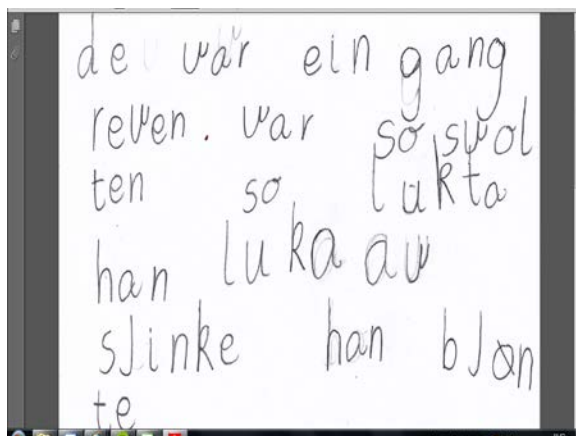 de var ein gang
reven. var so svol
ten so lukta
han luka av
sjinke han bjøn
te